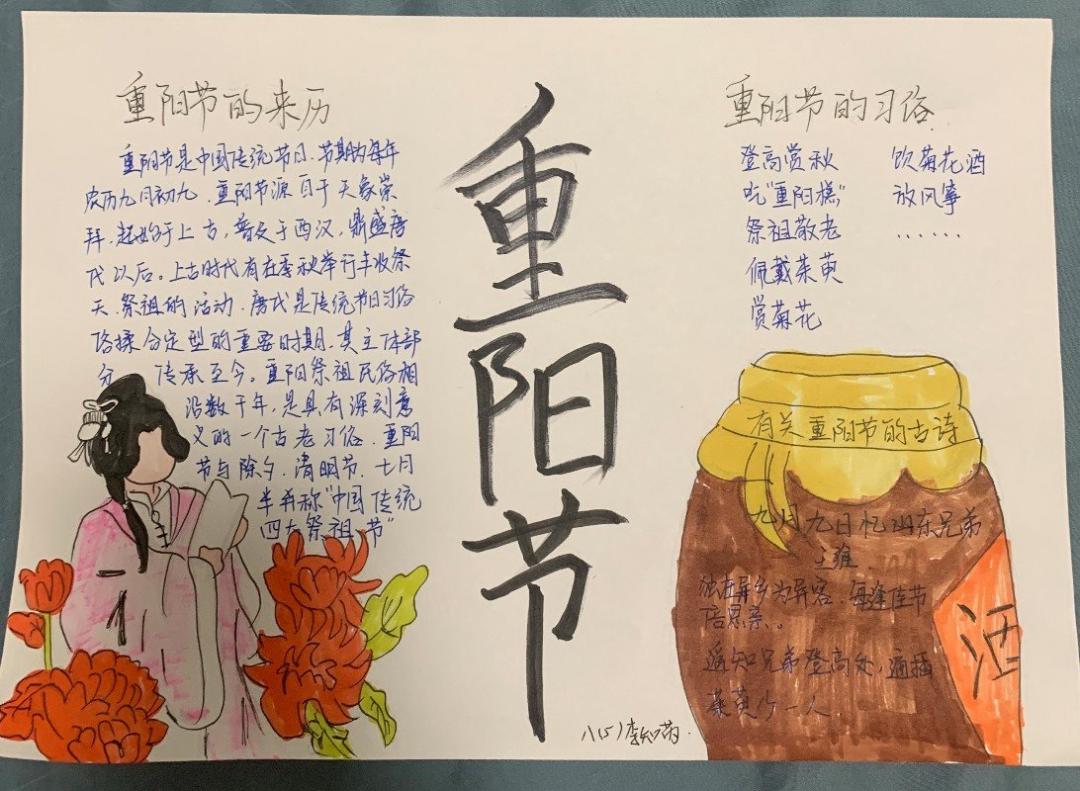 重阳节的来历
重阳节是中国传统节日、节期为每年
农历九月初九．重阳节源自于天象崇
拜．起始于上古，普及于西汉，鼎盛唐
代以后。上古时代有在季秋举行丰收祭
天、祭祖的活动．唐代是传统节日习俗
揉合定型的重要时期．其主体部
分传承至今。重阳祭祖民俗相
沿数千年，是具有深刻意
义的一个古老习俗．重阳
节与除夕．清明节．七月
半并称“中国传统
四大祭祖节”
重阳节
重阳节的习俗
登高赏秋 饮菊花酒
吃“重阳糕” 放风筝
祭祖敬老 ......
佩戴茱萸
赏菊花
有关重阳节的古诗
九月九日忆山东兄弟
王维．
独在异乡为异客．每逢佳节
倍思亲。
遥知兄弟登高处，遍插
茱萸少一人
酒
八(5)李